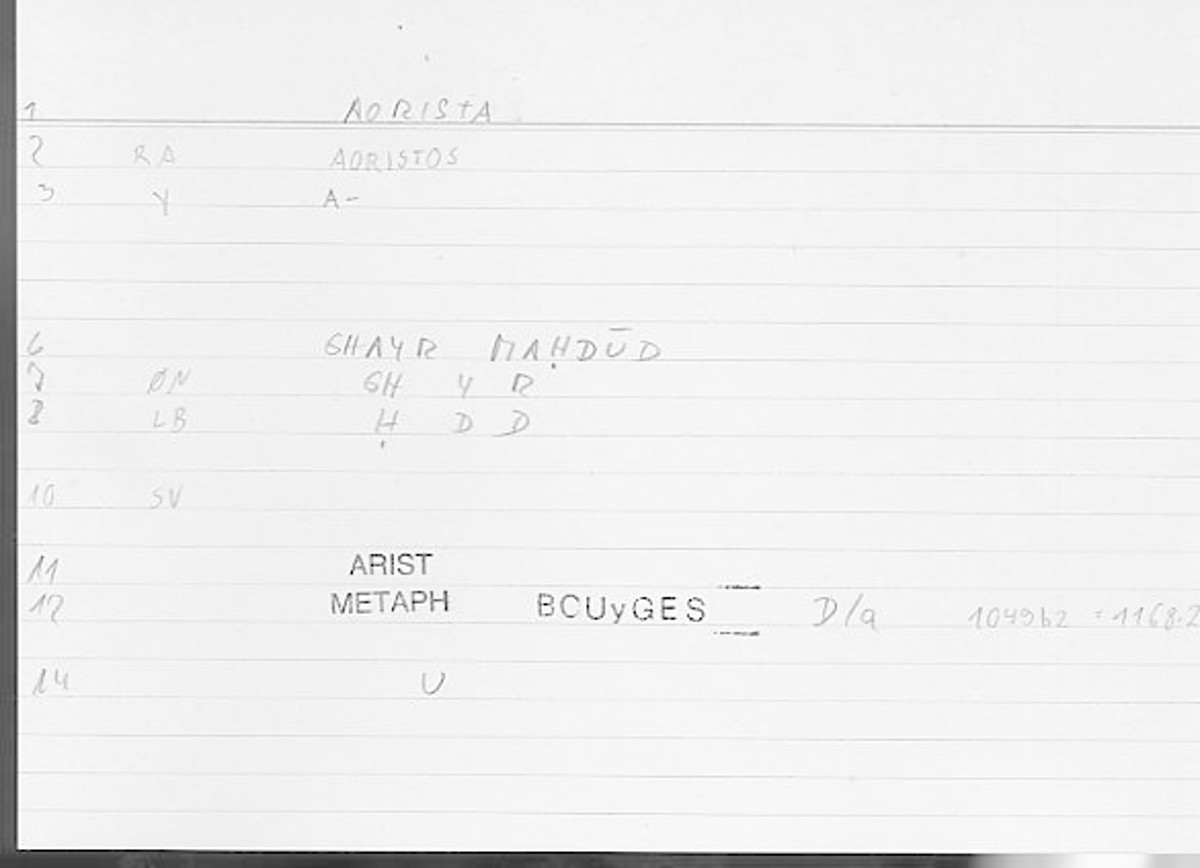 1 AORISTA
2 RA AORISTOS
3 Y A-
6 GHAYR MAḤDŪD
7 ØN GH Y R
8 LB Ḥ D D
10 SV
11 ARIST
12 METAPH BCUyGES D/a 1049b2 = 1168.2
14 U